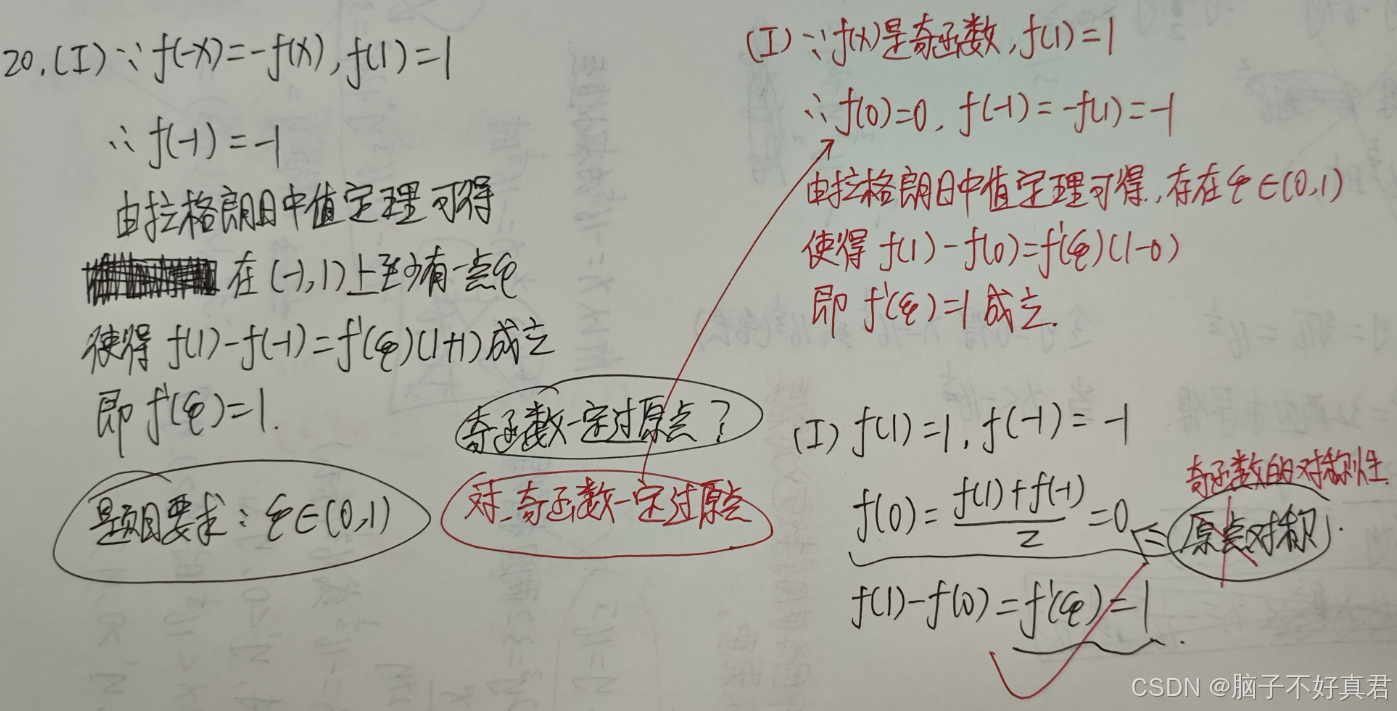 20.(I)∵f(-x)=-f(x),f(1)=1
∴f(-1)=-1
由拉格朗日中值定理可得
在(-1,1)上至少有一点ξ
使得f(1)-f(-1)=f'(ξ)(1+1)成立
即f'(ξ)=1.
题目要求:ξ∈(0,1)
奇函数一定过原点?
对,奇函数一定过原点
(I)∵f(x)是奇函数,f(1)=1
∴f(0)=0,f(-1)=-f(1)=-1
由拉格朗日中值定理可得,存在ξ∈(0,1)
使得f(1)-f(0)=f'(ξ)(1-0)
即f'(ξ)=1成立.
(I)f(1)=1,f(-1)=-1
f(0)=\frac{f(1)+f(-1)}{2}=0
奇函数的对称性
原点对称
f(1)-f(0)=f'(ξ)=1.
CSDN @脑子不好真君